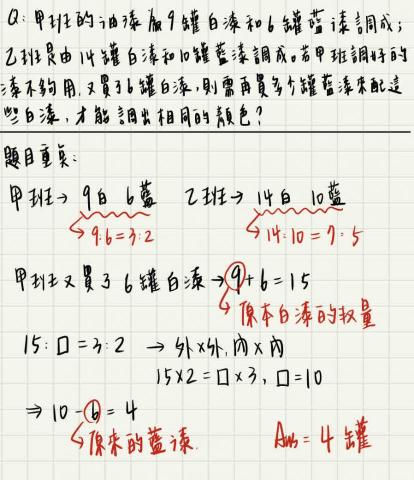 Q:甲班的油漆由9罐白漆和6罐藍漆調成;
乙班是由14罐白漆和10罐藍漆調成。若甲班調好的
漆不夠用,又買了6罐白漆,則需再買多少罐藍漆來配這
些白漆,才能調出相同的顏色?
題目重點:
甲班→ 9白 6藍 乙班→ 14白 10藍
9:6=3:2 14:10=7:5
甲班又買了6罐白漆→9+6=15
原本白漆的數量
15:□=3:2 → 外×外,內×內
15×2=□×3, □=10
⇒ 10-6=4
原來的藍漆. Ans=4罐